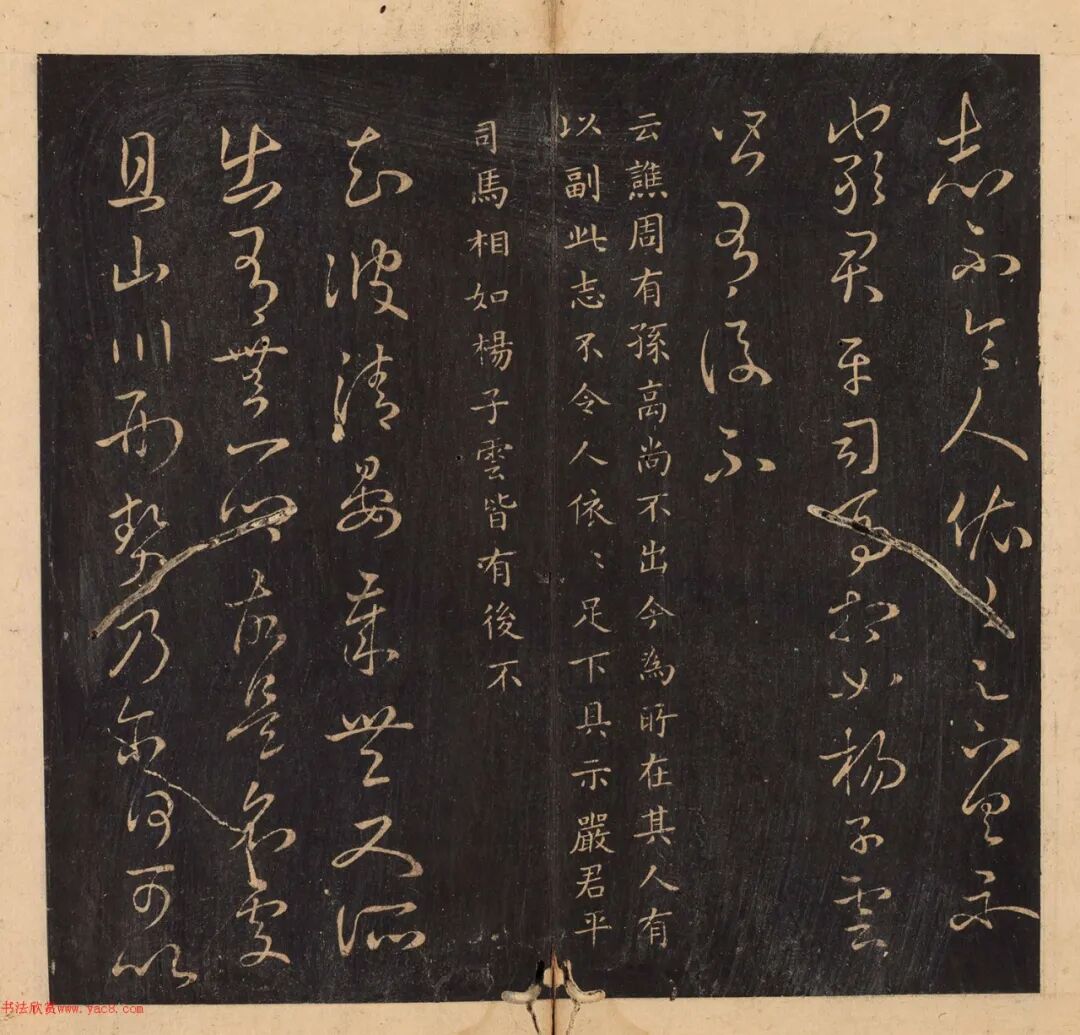 志不令人依〻足下具示
嚴君平司馬相如楊子雲
皆有後不
云譙周有孫高尚不出今為所在其人有
以副此志不令人依〻足下具示嚴君平
司馬相如楊子雲皆有後不
知彼清晏歲豐又所
出有無一鄉故是名處
且山川形勢乃爾何可以
书法欣赏www.yac8.com